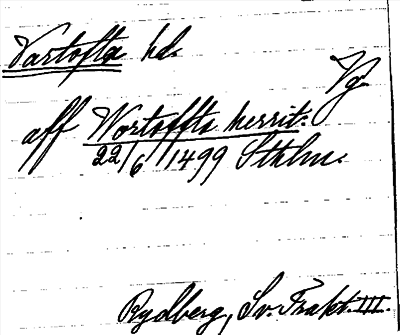 Vartofta hd.
Vg
aff Wortoffta herrit.
22/6 1499 Sthlm.
Rydberg, Sv. Trakt. III.